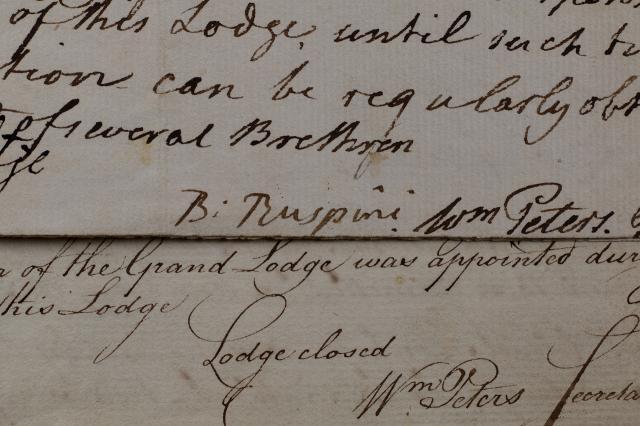 of this Lodge, until such
tion can be regularly
of several Brethren
B: Ruspini. Wm Peters.
of the Grand Lodge was appointed dur
this Lodge
Lodge closed
Wm Peters Secreta